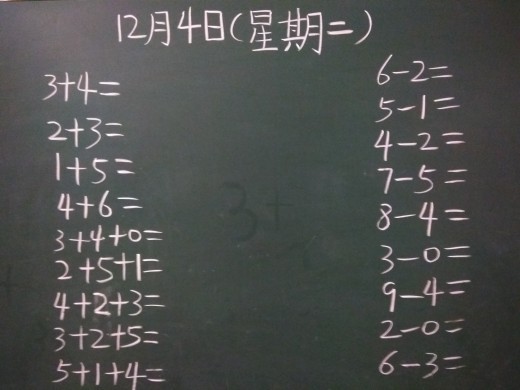 12月4日(星期二)
3+4=
2+3=
1+5=
4+6=
3+4+0=
2+5+1=
4+2+3=
3+2+5=
5+1+4=
6-2=
5-1=
4-2=
7-5=
8-4=
3-0=
9-4=
2-0=
6-3=
3+